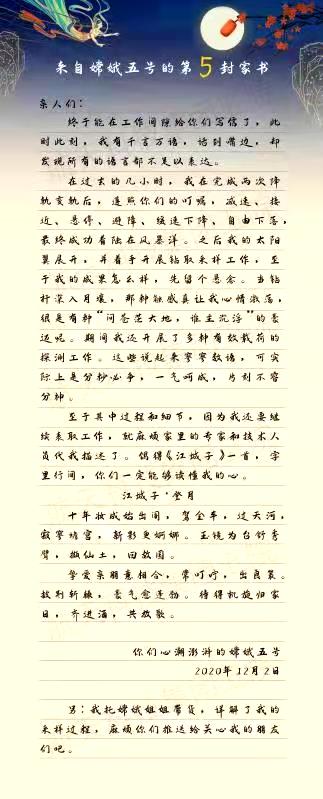 来自嫦娥五号的第5封家书
亲人们：
终于能在工作间隙给你们写信了，此
时此刻，我有千言万语，话到嘴边，却
发现所有的语言都不足以表达。
在过去的几小时，我在完成两次降
轨变轨后，遵照你们的叮嘱，减速、接
近、悬停、避障、缓速下降、自由下落，
最终成功着陆在风暴洋。之后我的太阳
翼展开，并着手开展钻取采样工作，至
于我的成果怎么样，先留个悬念。当钻
杆深入月壤，那种触感真让我心情激荡，
很是有种“问苍茫大地，谁主沉浮”的豪
迈呢。期间我还开展了多种有效载荷的
探测工作。这些说起来寥寥数语，可实
际上是分秒必争，一气呵成，片刻不容
分神。
至于其中过程和细节，因为我还要继
续表取工作，就麻烦家里的专家和技术人
员代我描述了。偶得《江城子》一首，字
里行间，你们一定能够读懂我的心。
江城子·登月
十年妆成始出阁，驾金车，过天河，
寂寥诗宫，新影更婀娜。玉镜为台舒秀
臂，撷仙土，回故国。
挚爱亲朋意相合，常叮咛，出良策。
披荆斩棘，豪气愈蓬勃。待得凯旋归家
日，齐进酒，共放歌。
你们心潮澎湃的嫦娥五号
2020年12月2日
另：我托嫦娥姐姐带货，详解了我的
采样过程，麻烦你们推送给关心我的朋友
们吧。